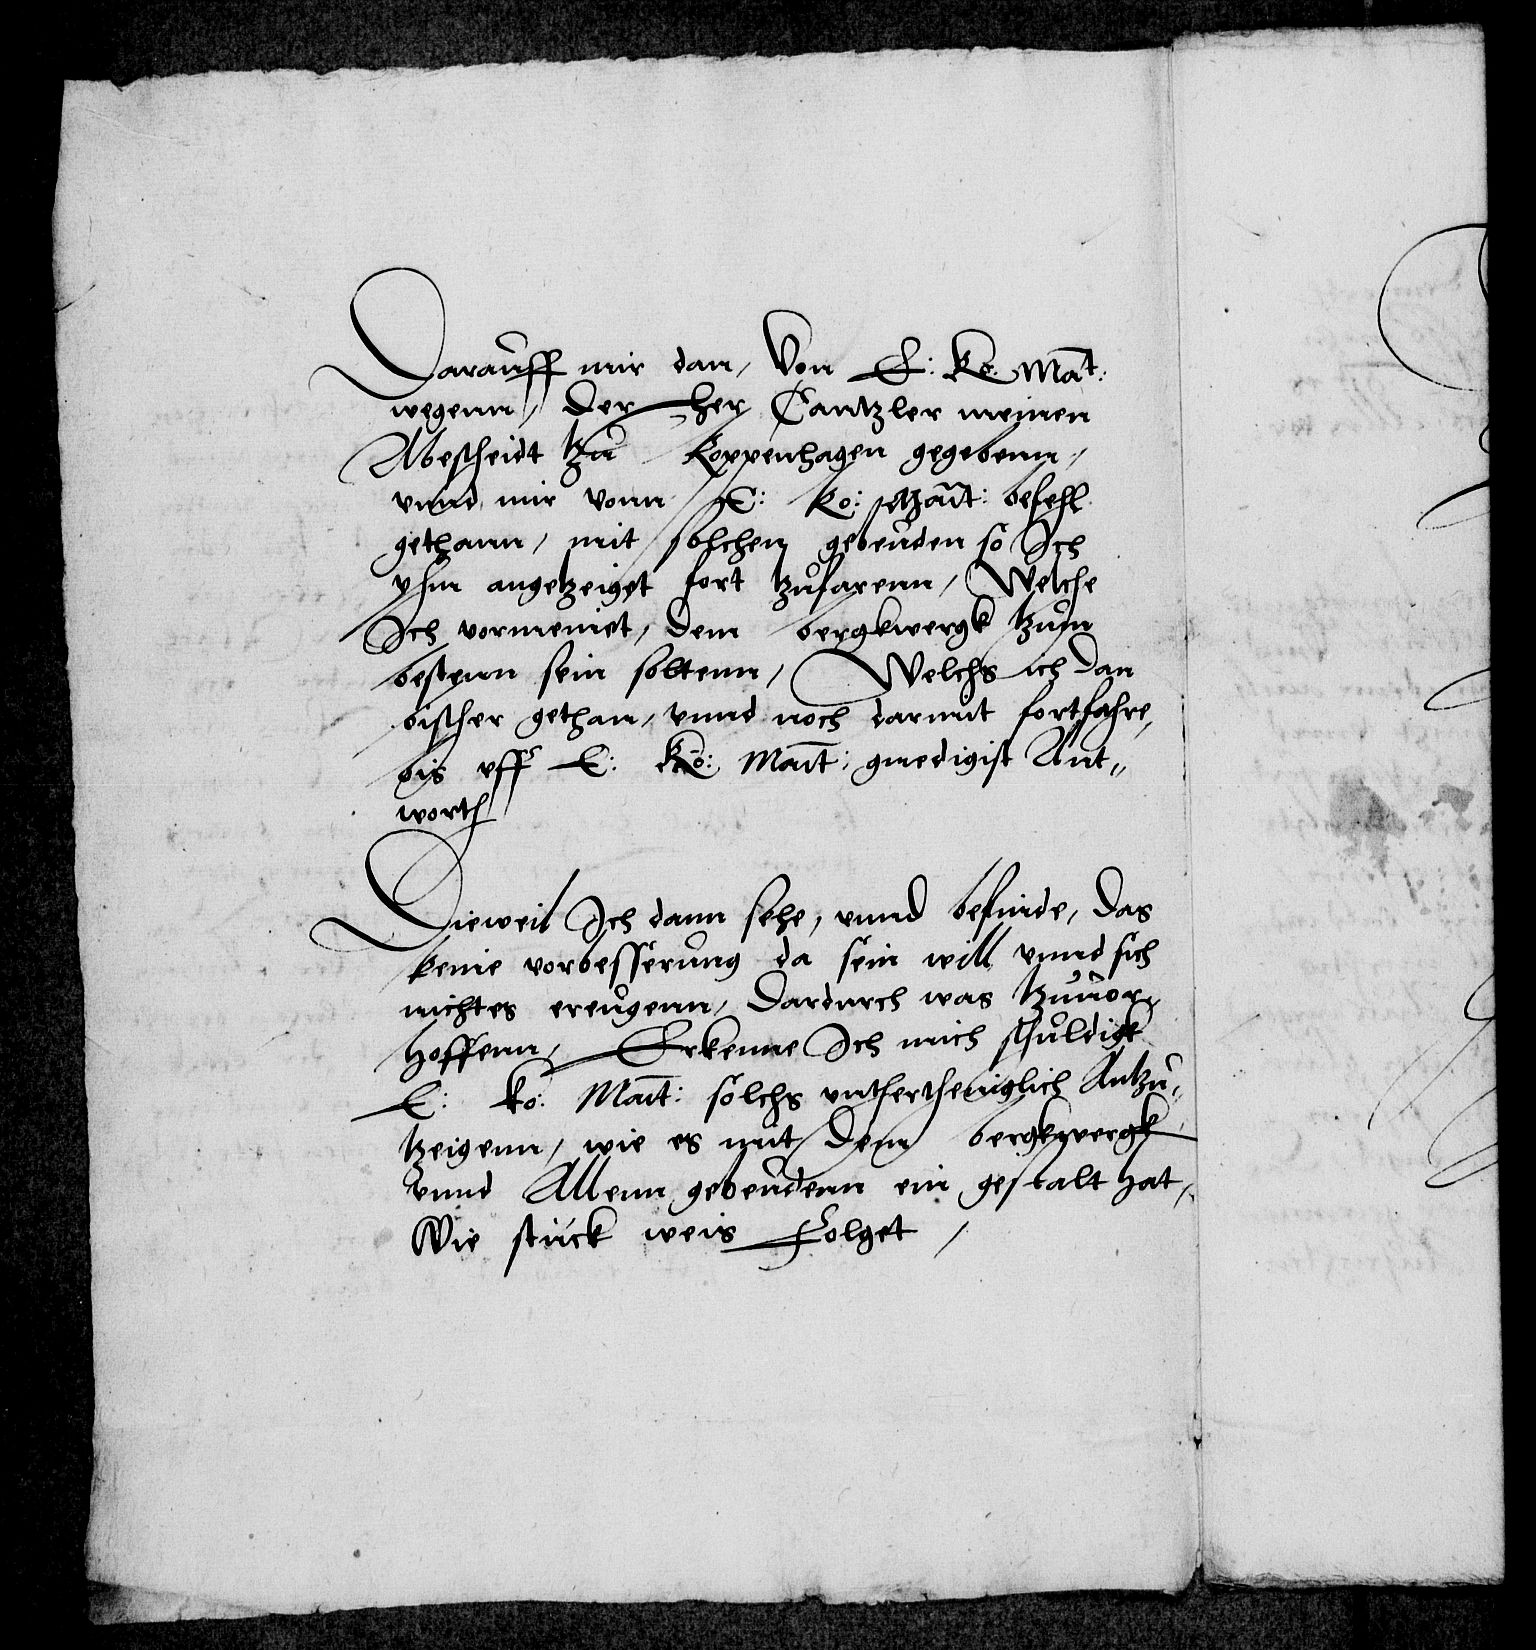 Darauff mir dan, Von E: Ko: Mat:
wegenn, Der Her Cantzler meinen
Abescheidt tzu Koppenhagen gegebenn,
vnnd mir vonn E: Ko: Mait: befehl
gethann, mit solchen gebeuden so Ich
yhm angetzeiget fort tzufarenn, Welche
Ich vormeniet, dem bergkwergk tzum
bestenn sein soltenn, Welchs ich dan
bisher gethan, vnnd noch darmit fortfahre,
bis vff E: Ko: Mait: gnedigist Ant„
worth
Dieweil Ich dann sehe, vnnd befinde, das
keine vorbesserung da sein will vnnd sich
nichtes ereugenn, Dardurch was tzuuor„
hoffenn, Erkenne Ich mich schuldigk
E: Ko: Mait: solchs vnthertheniglich Antzu„
tzeigenn, wie es mit dem bergkwergk
vnnd Allenn gebeudenn ein gestalt hat,
Wie stuck weis Folget,